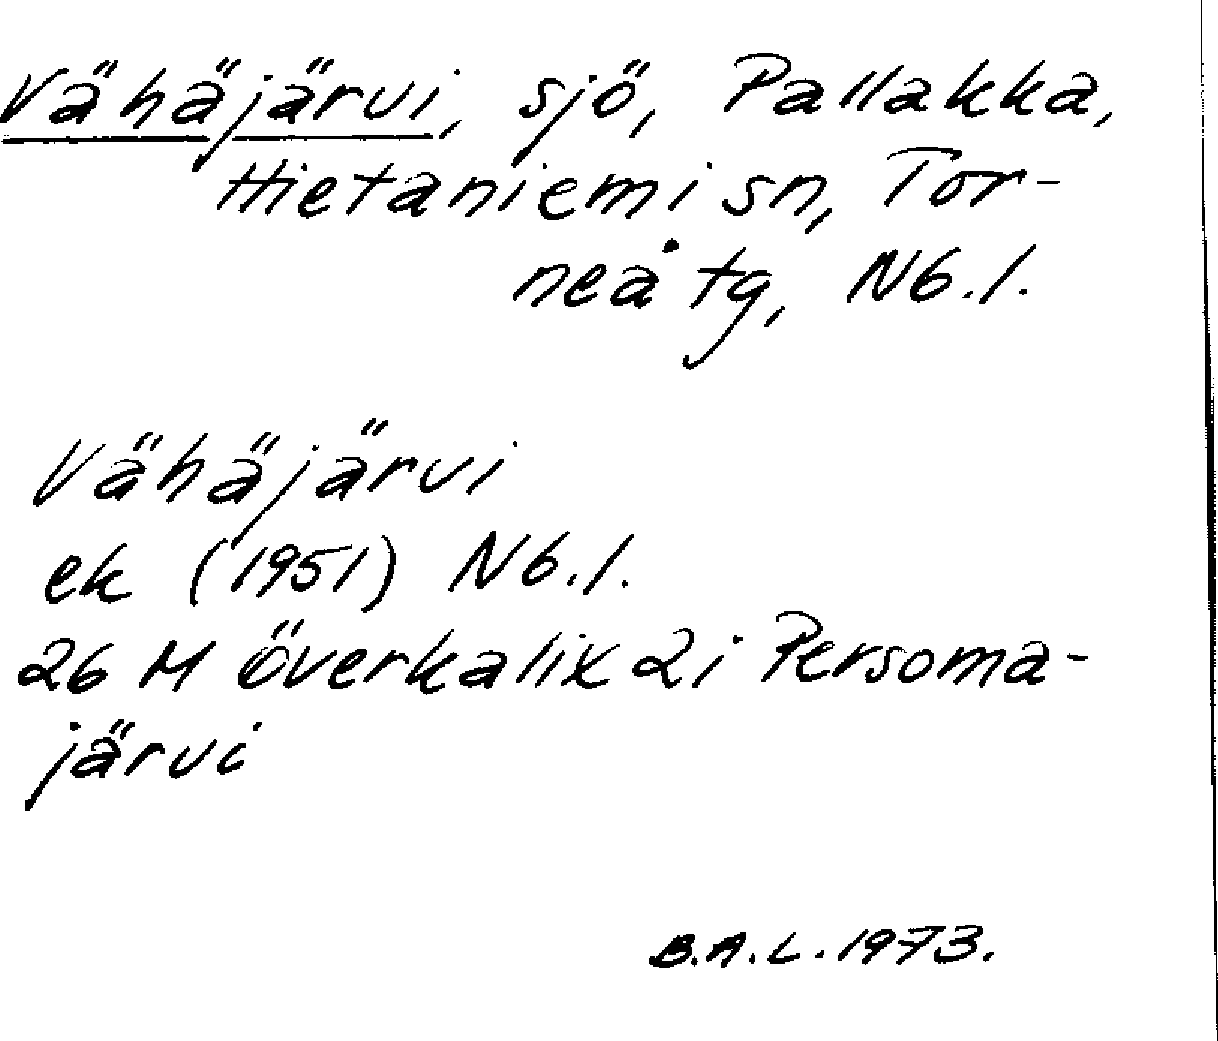 Vähäjärvi, sjö, Pallakka,
Hietaniemi sn, Tor-
neå tg, Nb.l.
Vähäjärvi
ek (1951) Nb.l.
26 M Överkalix 2i Persoma-
järvi
B.A.L. 1973.